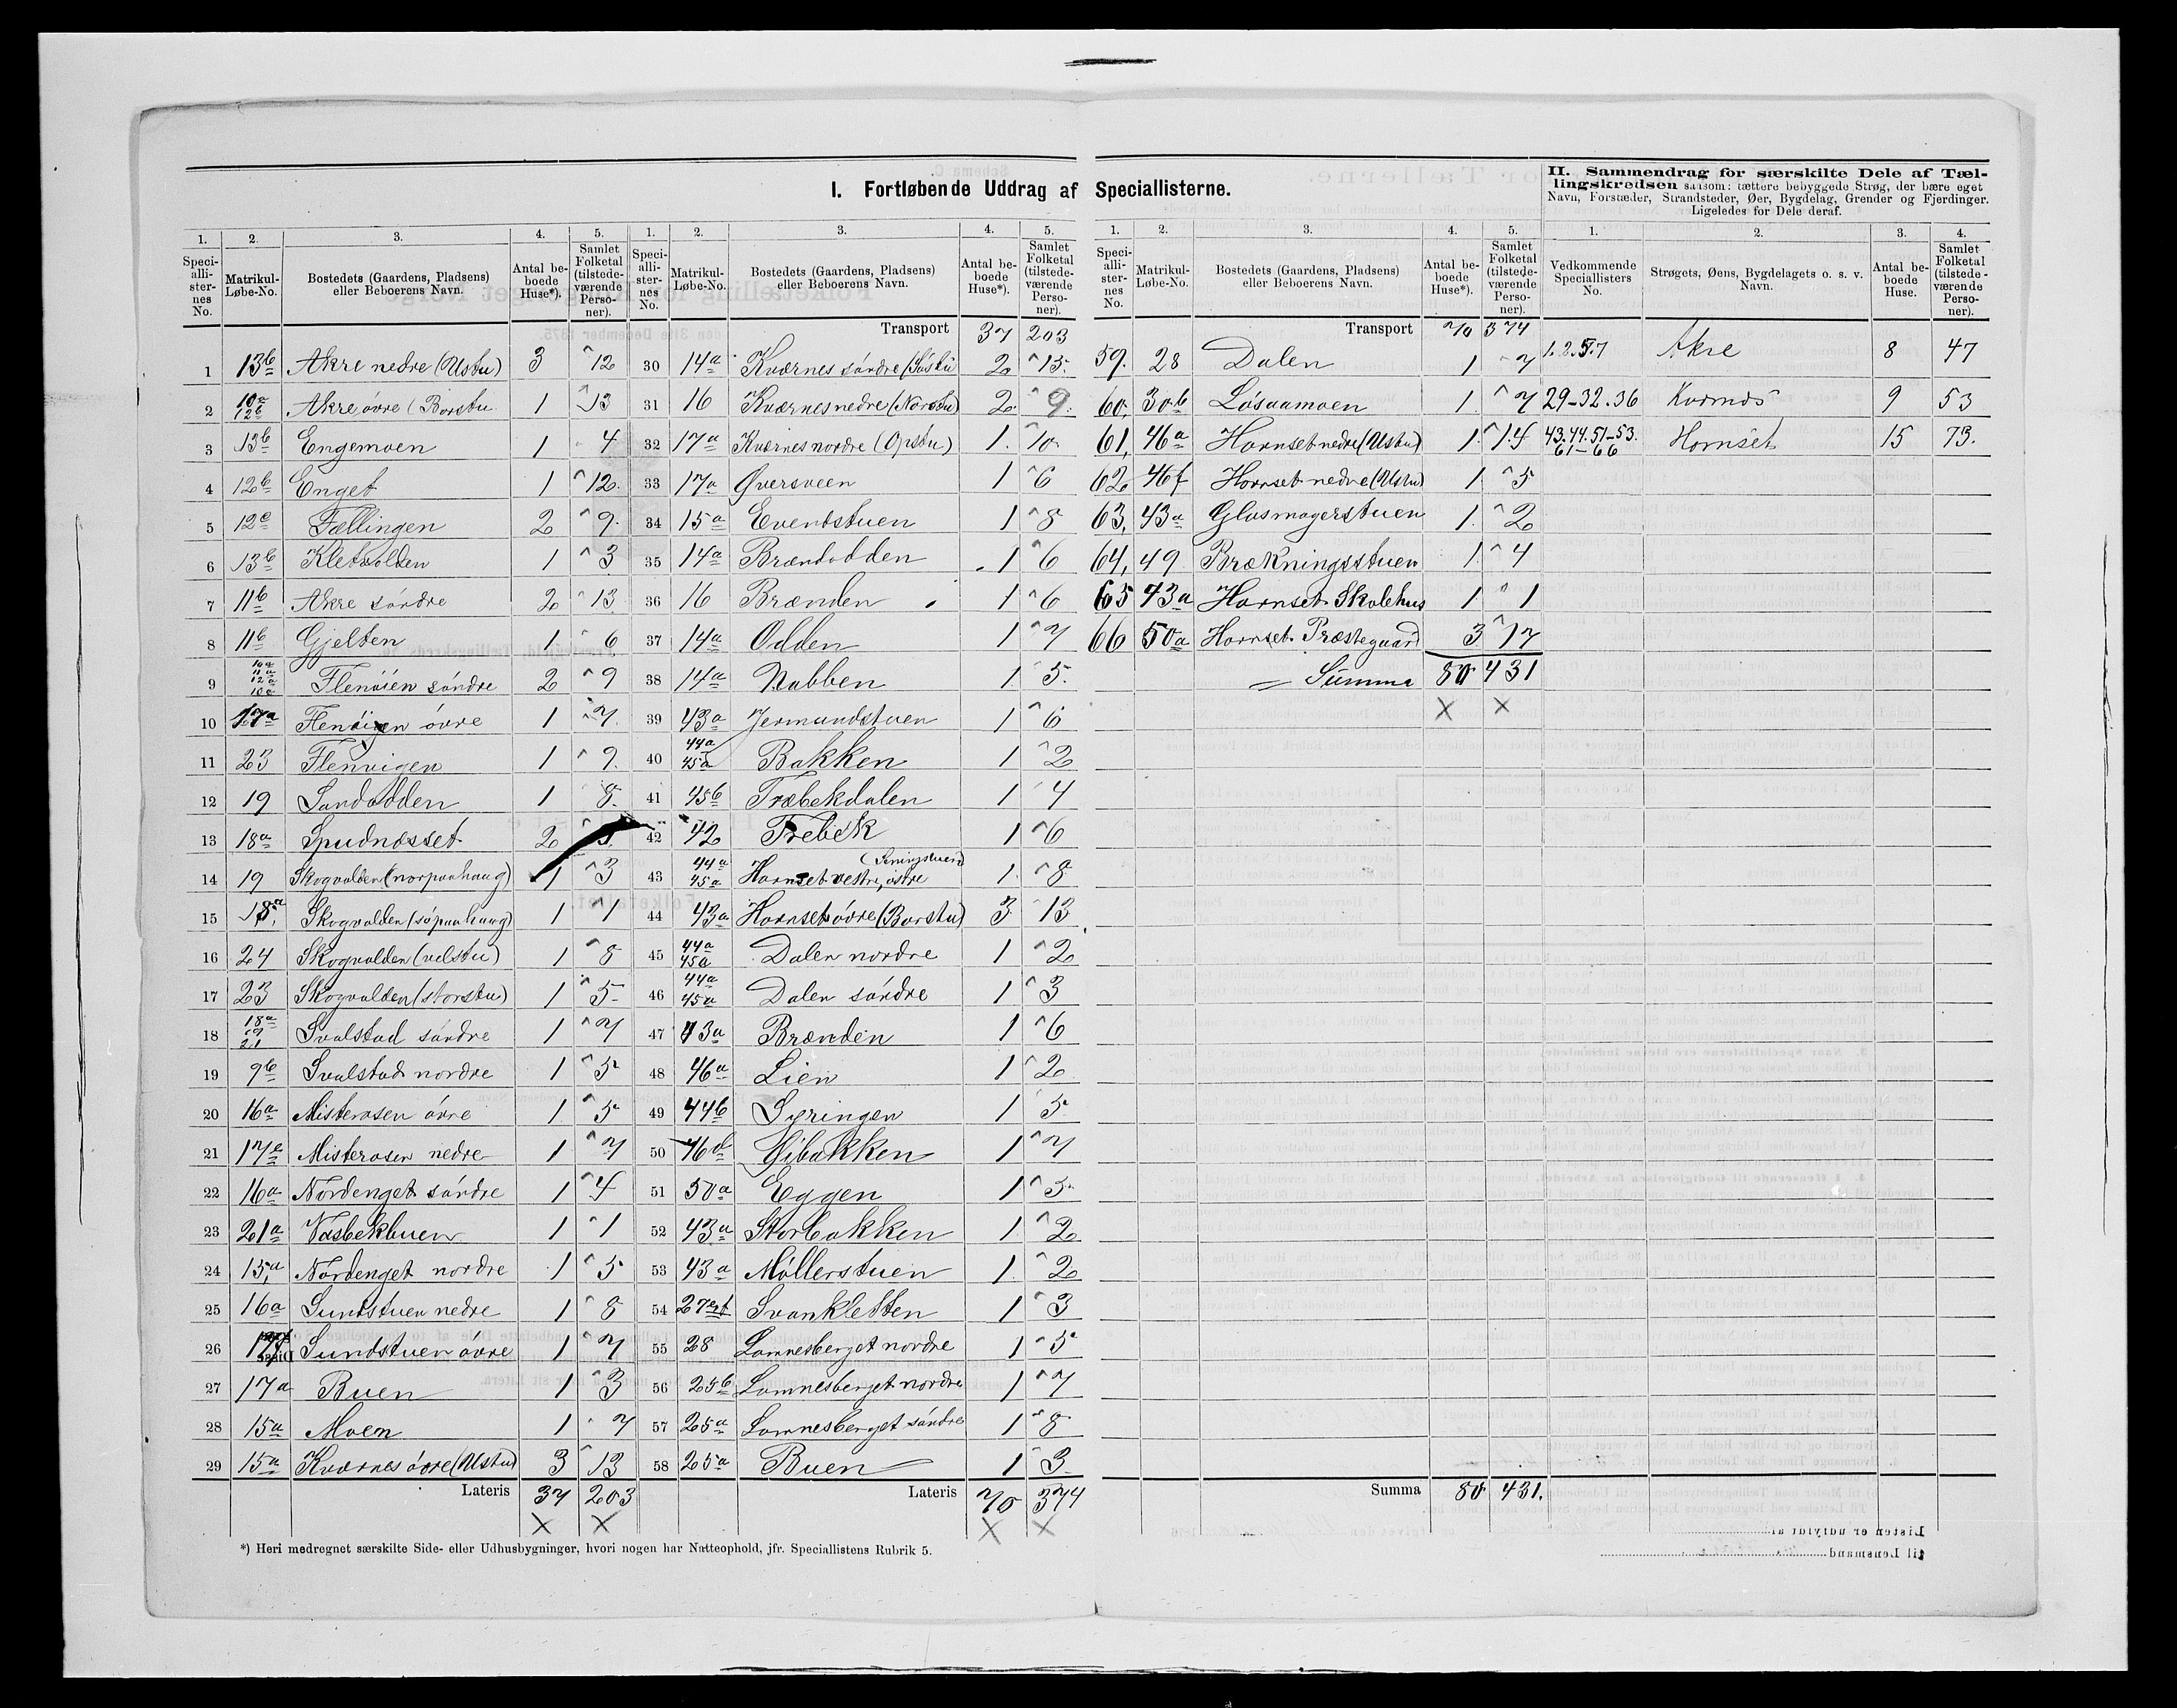 I. Fortløbende Uddrag af Speciallisterne.
II. Sammendrag for særskilte Dele af Tæl-
lingskredsen saasom: tættere bebyggede Strøg, der bære eget
Navn, Forstæder, Strandsteder, Øer, Bygdelag, Grender og Fjerdinger.
Ligeledes for Dele deraf.
1. 2. 3. 4. 5.
Speci-alli-ster-nes No. Matrikul-Løbe-No. Bostedets (Gaardens, Pladsens) eller Beboerens Navn. Antal be-boede Huse*). Samlet Folketal (tilstede-værende Perso-ner).
1 13b Akre nedre (Ustu) 3 12
2 10a 12b Akre øvre (Borstu 1 13
3 13b Engemoen 1 4
4 12b Enget 1 12
5 12e Fællingen 2 9
6 13b Kletvolden 1 3
7 11b Akre søndre 2 13
8 11b Gjelten 1 6
9 Flenøien søndre 2 9
10 17a Flenøien øvre 1 7
11 23 Flenvigen 1 9
12 19 Sandodden 1 8
13 18a Spudnæsset 2
14 19 Skogvolden (norpaahaug) 1 3
15 18a Skogvolden (søpaahaug) 1 1
16 24 Skogvolden (velstu) 1 8
17 23 Skogvolden (storstu) 1 5
18 18a 19 21 Svalstad søndre 1 7
19 9b Svalstad nordre 1 5
20 16a Misterosen øvre 1 5
21 17e Misterosen nedre 1 7
22 16a Nordenget søndre 1 4
23 21a Væsbekbuen 1 1
24 15a Nordenget nordre 1 5
25 16a Sundstuen nedre 1 8
26 Sundstuen øvre 1 7
27 17a Buen 1 3
28 15a Moen 1 7
29 15a Kværnes øvre (Ustu) 3 13
Lateris 37 203
× ×
1. 2. 3. 4. 5.
Speci-alli-ster-nes No. Matrikul-Løbe-No. Bostedets (Gaardens, Pladsens) eller Beboerens Navn. Antal be-boede Huse*). Samlet Folketal (tilstede-værende Perso-ner).
Transport 37 203
30 14a Kværnes søndre (Søstu 2 15
31 16 Kværnes nedre (Norstu) 2 9
32 17a Kværnes nordre (Opstu) 1 10
33 17a Øversveen 1 6
34 15a Evenstuen 1 8
35 14a Brændodden 1 6
36 16 Brænden 1 6
37 14a Odden 1 7
38 14a Nabben 1 5
39 43a Jermundstuen 1 6
40 44a 45a Bakken 1 2
41 45b Træbekdalen 1 4
42 42 Trebek 1 6
43 44a 45a Hornset vestre, østre 1 8
44 43a Hornset øvre (Borstu) 3 13
45 44a 45a Dalen nordre 1 2
46 44a 45a Dalen søndre 1 3
47 43a Brænden 1 6
48 46a Lien 1 2
49 44b Syringen 1 5
50 46d Hibakken 1 7
51 50a Eggen 1 5
52 43a Storbakken 1 2
53 43a Møllerstuen 1 2
54 Svankletten 1 3
55 28 Lomnesberget nordre 1 5
56 25b Lomnesberget nordre 1 7
57 25a Lomnesberget søndre 1 8
58 25a Buen 1 3
Lateris 70 374
× ×
1. 2. 3. 4. 5.
Speci-alli-ster-nes No. Matrikul-Løbe-No. Bostedets (Gaardens, Pladsens) eller Beboerens Navn. Antal be-boede Huse*). Samlet Folketal (tilstede-værende Perso-ner).
Transport 70 374
59. 28 Dalen 1 7
60, 30b Løsaamoen 1 7
61, 46a Hornset nedre (Ustu) 1 14
62 46f Hornset nedre (Ustu) 1 5
63, 43a Glasmagerstuen 1. 2
64, 49 Brækningsstuen 1 4
65 43a Hornset Skolehus 1 1
66 50a Hornset Præstegaard 3 17
Summa 80 431
× ×
Summa 80 431.
1. 2. 3. 4.
Vedkommende Speciallisters No. Strøgets, Øens, Bygdelagets o. s. v. Navn. Antal be-boede Huse. Samlet Folketal (tilstede-værende Perso-ner).
1.2.5.7 Akre 8 47
29-32.36 Kværnes 9 53
43.44.51-53. 61-66 Hornset 15 73.
*) Heri medregnet særskilte Side- eller Udhusbygninger, hvori nogen har Natteophold, jfr. Speciallistens Rubrik 5.